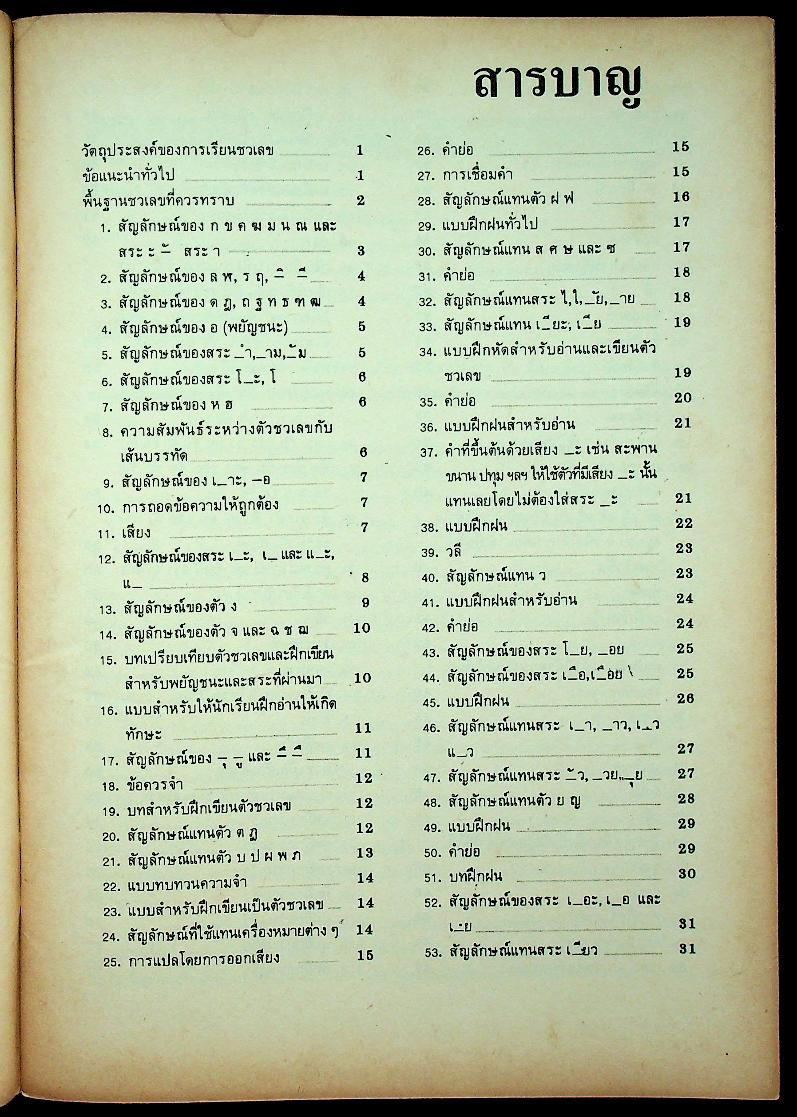 สารบาญ
วัตถุประสงค์ของการเรียนชวเลข 1
ข้อแนะนำทั่วไป 1
พื้นฐานชวเลขที่ควรทราบ 2
1. สัญลักษณ์ของ ก ข ค ฆ ม น ณ และ
สระ ะ –ั สระ า 3
2. สัญลักษณ์ของ ล ฬ, ร ฤ, –ิ –ี 4
3. สัญลักษณ์ของ ด ฎ, ถ ฐ ท ธ ฑ ฒ 4
4. สัญลักษณ์ของ อ (พยัญชนะ) 5
5. สัญลักษณ์ของสระ _ำ,_าม,_ัม 5
6. สัญลักษณ์ของสระ โ_ะ, โ 6
7. สัญลักษณ์ของ ห ฮ 6
8. ความสัมพันธ์ระหว่างตัวชวเลขกับ
เส้นบรรทัด 6
9. สัญลักษณ์ของ เ_าะ, –อ 7
10. การถอดข้อความให้ถูกต้อง 7
11. เสียง 7
12. สัญลักษณ์ของสระ เ_ะ, เ_ และ แ_ะ,
แ_ 8
13. สัญลักษณ์ของตัว ง 9
14. สัญลักษณ์ของตัว จ และ ฉ ช ฌ 10
15. บทเปรียบเทียบตัวชวเลขและฝึกเขียน
สำหรับพยัญชนะและสระที่ผ่านมา 10
16. แบบสำหรับให้นักเรียนฝึกอ่านให้เกิด
ทักษะ 11
17. สัญลักษณ์ของ –ุ –ู และ –ึ –ื 11
18. ข้อควรจำ 12
19. บทสำหรับฝึกเขียนตัวชวเลข 12
20. สัญลักษณ์แทนตัว ต ฏ 12
21. สัญลักษณ์แทนตัว บ ป ผ พ ภ 13
22. แบบทบทวนความจำ 14
23. แบบสำหรับฝึกเขียนเป็นตัวชวเลข 14
24. สัญลักษณ์ที่ใช้แทนเครื่องหมายต่าง ๆ 14
25. การแปลโดยการออกเสียง 15
26. คำย่อ 15
27. การเชื่อมคำ 15
28. สัญลักษณ์แทนตัว ฝ ฟ 16
29. แบบฝึกฝนทั่วไป 17
30. สัญลักษณ์แทน ส ศ ษ และ ซ 17
31. คำย่อ 18
32. สัญลักษณ์แทนสระ ไ,ใ,_ัย,_าย 18
33. สัญลักษณ์แทน เ_ียะ, เ_ีย 19
34. แบบฝึกหัดสำหรับอ่านและเขียนตัว
ชวเลข 19
35. คำย่อ 20
36. แบบฝึกฝนสำหรับอ่าน 21
37. คำที่ขึ้นต้นด้วยเสียง _ะ เช่น สะพาน
ขนาน ปทุม ฯลฯ ให้ใช้ตัวที่มีเสียง _ะ นั้น
แทนเลยโดยไม่ต้องใส่สระ _ะ 21
38. แบบฝึกฝน 22
39. วลี 23
40. สัญลักษณ์แทน ว 23
41. แบบฝึกฝนสำหรับอ่าน 24
42. คำย่อ 24
43. สัญลักษณ์ของสระ โ_ย, _อย 25
44. สัญลักษณ์ของสระ เ_ือ,เ_ือย 25
45. แบบฝึกฝน 26
46. สัญลักษณ์แทนสระ เ_า, _าว, เ_ว
แ_ว 27
47. สัญลักษณ์แทนสระ _ัว, _วย,_ุย 27
48. สัญลักษณ์แทนตัว ย ญ 28
49. แบบฝึกฝน 29
50. คำย่อ 29
51. บทฝึกฝน 30
52. สัญลักษณ์ของสระ เ_อะ, เ_อ และ
เ_ย 31
53. สัญลักษณ์แทนสระ เ_ียว 31